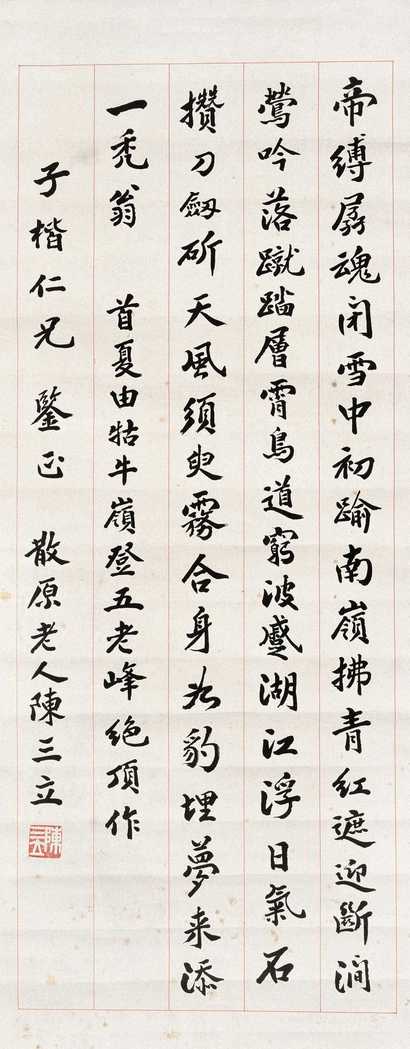 帝縛孱魂閉雪中初踰南嶺拂青紅遮迎斷澗
鶯吟落蹴蹋層霄鳥道窮波蹙湖江浮日氣石
攢刀劔斫天風須臾霧合身為豹埋夢来添
一禿翁　首夏由牯牛嶺登五老峰絕頂作
子楷仁兄 鑒正 散原老人陳三立
陳三立